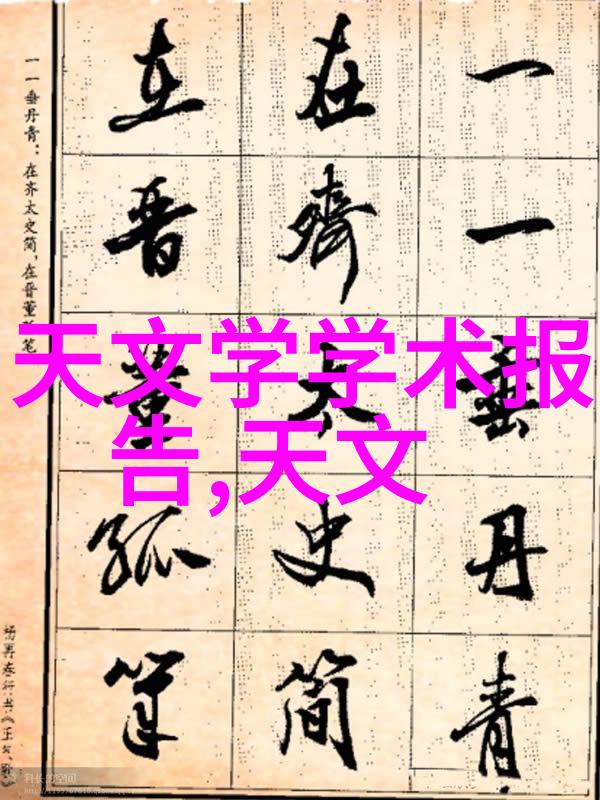 一一垂丹青
在齐太史简
在晋董狐笔
一一垂丹青：在齐太史简，在晋董狐笔
天文学学术报
告,天文
科长的空间